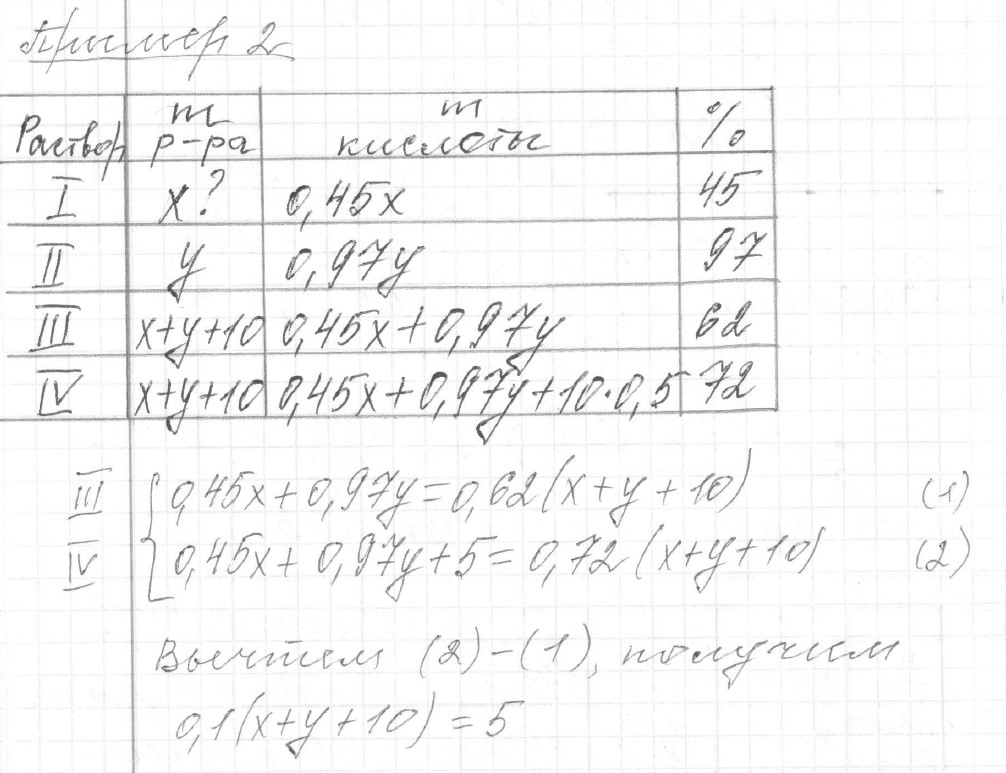 Пример 2
Раствор m р-ра m кислоты %
I x? 0,45x 45
II y 0,97y 97
III x+y+10 0,45x+0,97y 62
IV x+y+10 0,45x+0,97y+10·0,5 72
III { 0,45x+0,97y=0,62(x+y+10) (1)
IV 0,45x+0,97y+5=0,72(x+y+10) (2)
Вычтем (2)-(1), получим
0,1(x+y+10)=5